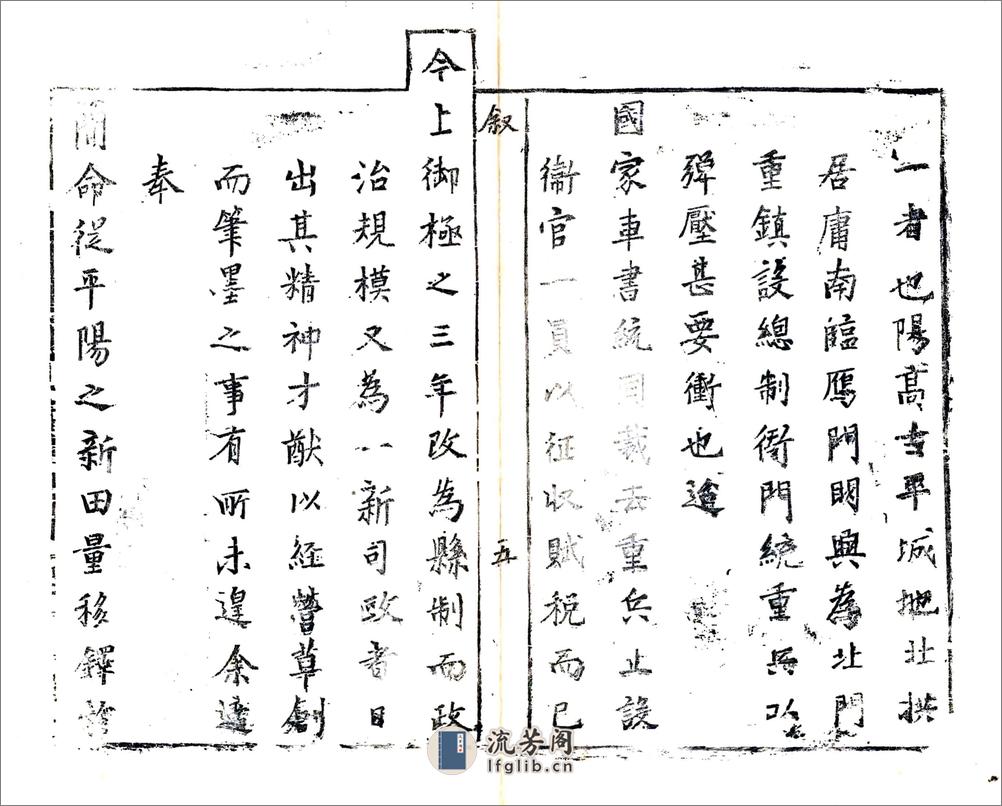 一者也陽高古平城地北拱
居庸南臨鴈門明興為北門
重鎮設總制衙門統重兵以
彈壓甚要衝也迨
國家車書統同裁去重兵止設
衞官一員以征収賦税而已
叙
五
今上御極之三年改為縣制而政
治規模又為一新司政者日
出其精神才猷以経營草創
而筆墨之事有所未遑余適
奉
簡命從平陽之新田量移鐸於
流芳阁
lfglib.cn